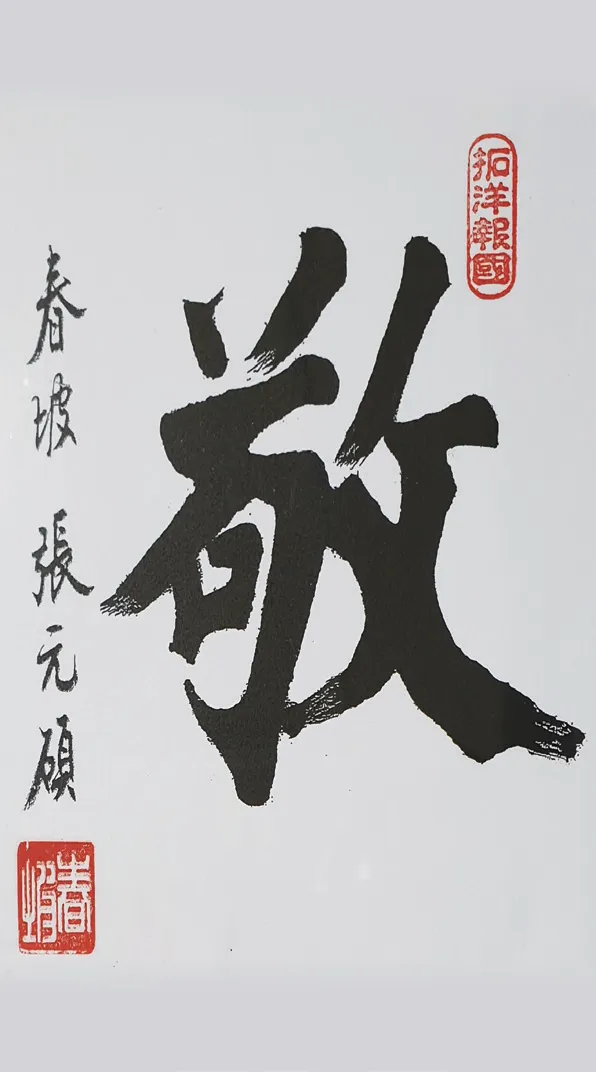 拓洋報國
敬
春坡 張元碩
春坡